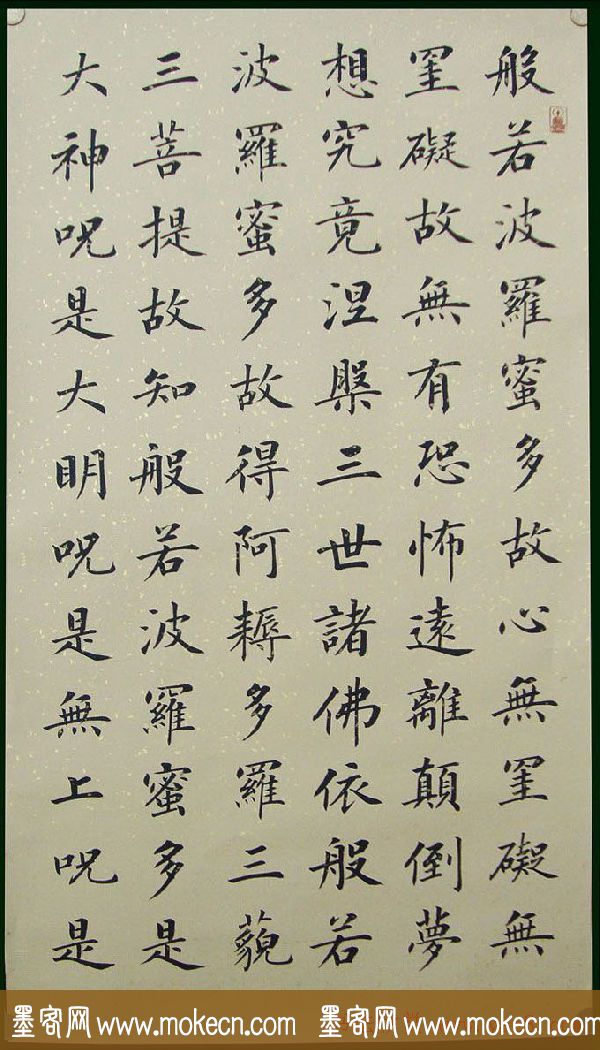 般若波羅蜜多故心無罣礙無
罣礙故無有恐怖遠離顛倒夢
想究竟涅槃三世諸佛依般若
波羅蜜多故得阿耨多羅三藐
三菩提故知般若波羅蜜多是
大神呪是大明呪是無上呪是
墨客网 www.mokecn.com 墨客网 www.mokecn.com